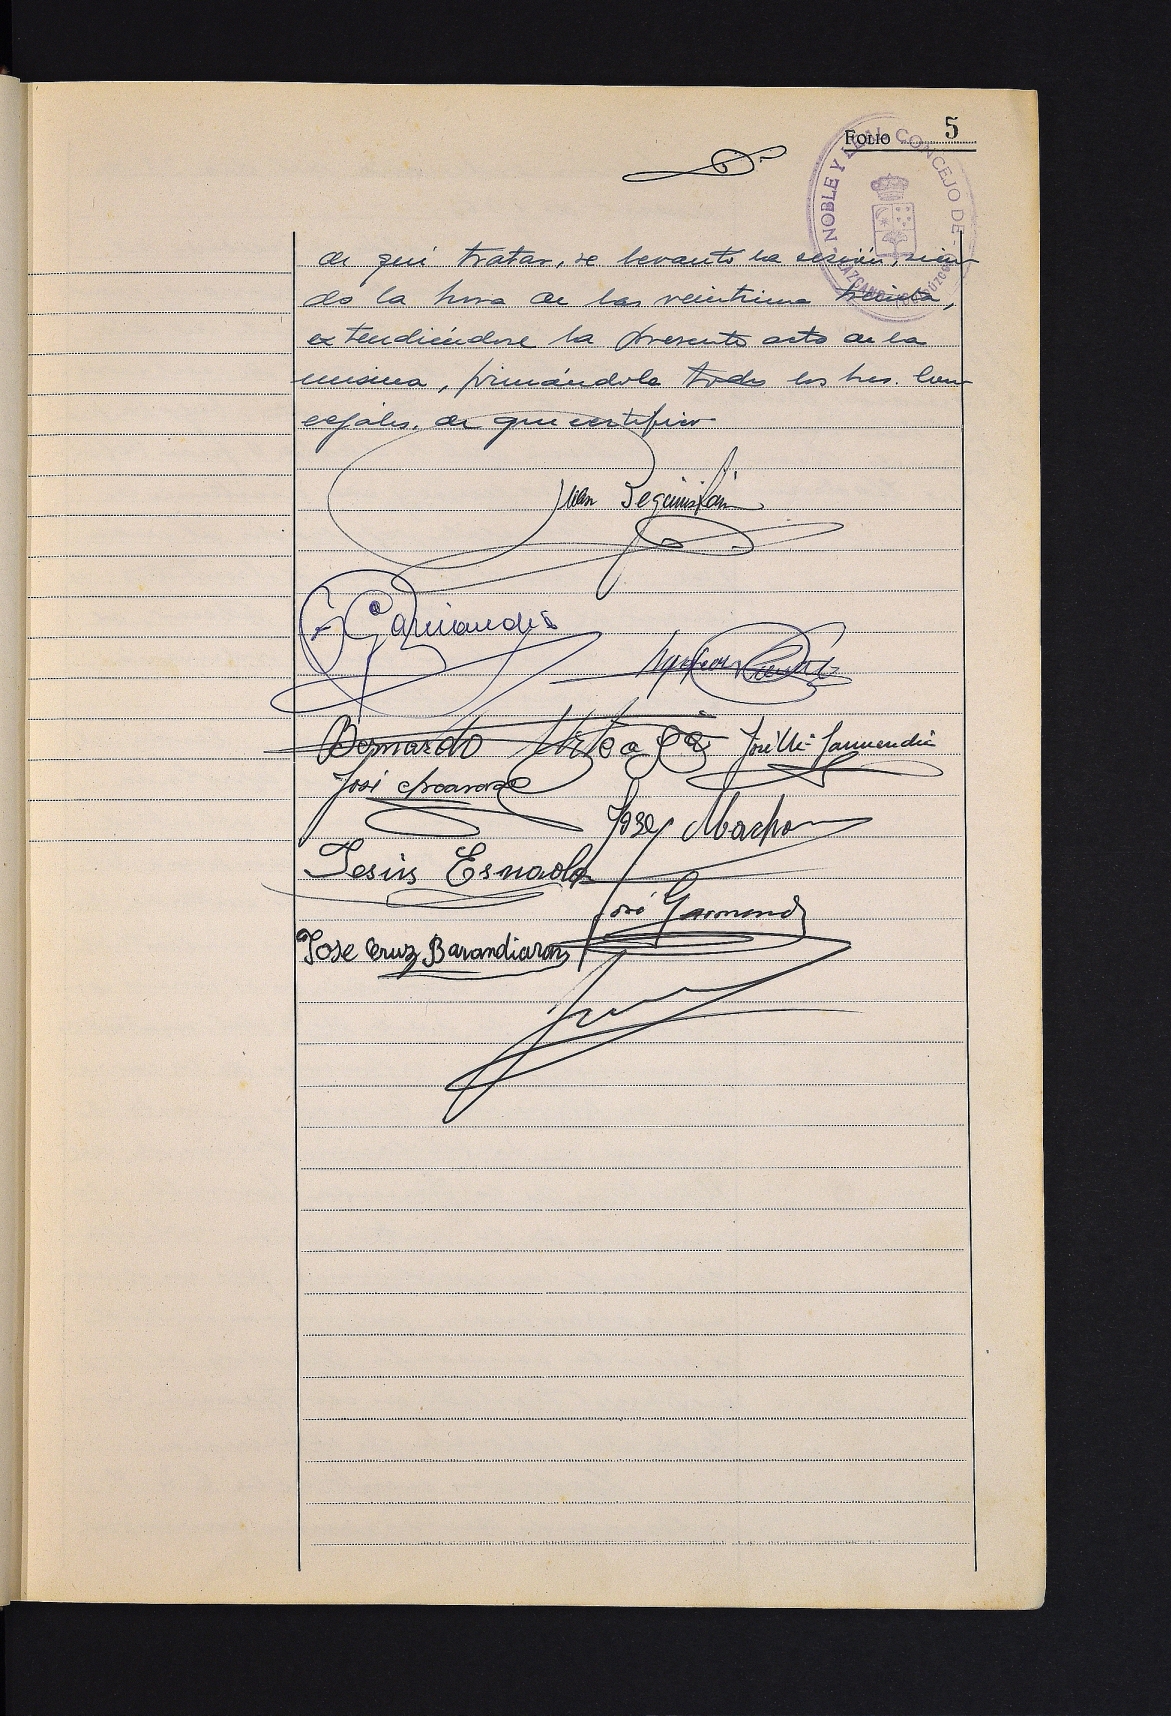 FOLIO 5
NOBLE Y LEAL CONCEJO DE LAZCANO (GUIPUZCOA)
de qué tratar, se levanto la sesión, sien-
do la hora de las veintiuna treinta,
extendiéndose la presente acta de la
misma, firmándola todos los Sres. Con-
cejales, de que certifico.
Juan Beguiristain
Garmendia
Bernardo Urteaga José Mª Garmendia
José
José Nacho
Jesús Esnaola
José Garmend
Jose Cruz Barandiaran